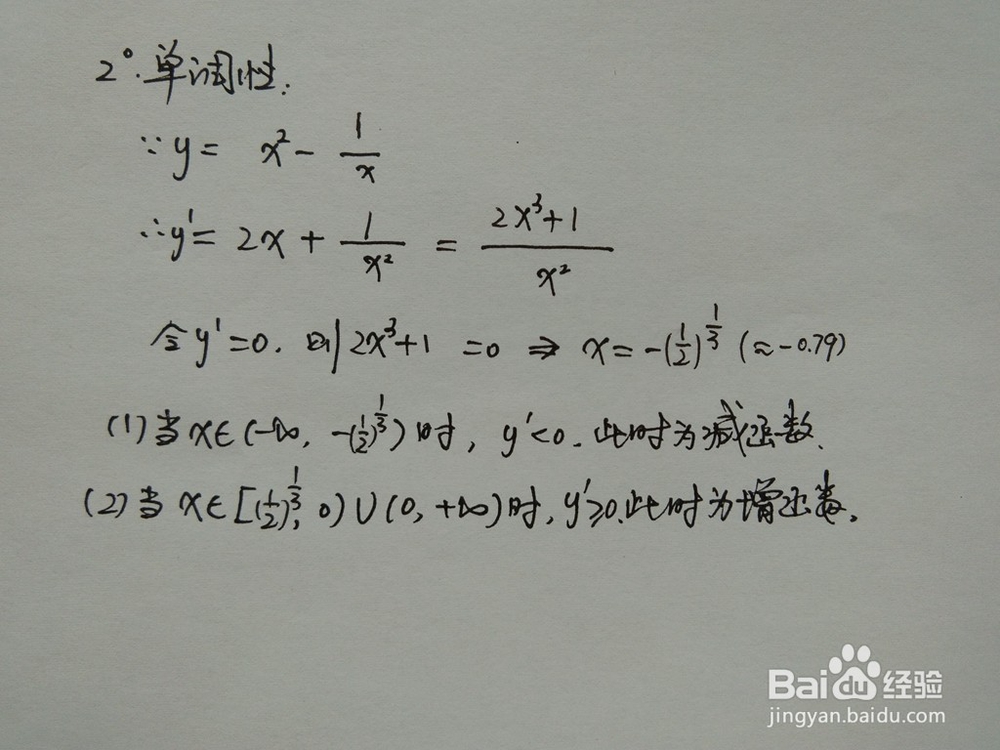 2°.单调性.
∵y= x²- 1/x
∴y'= 2x + 1/x² = (2x³+1)/x²
令y'=0. 则2x³+1 =0 ⇒ x=-(1/2)^(1/3) (≈-0.79)
(1)当x∈(-∞, -(1/2)^(1/3))时, y'<0. 此时为减函数.
(2)当x∈[(1/2)^(1/3), 0)∪(0, +∞)时, y'≥0.此时为增函数.
Baidu经验
jingyan.baidu.com